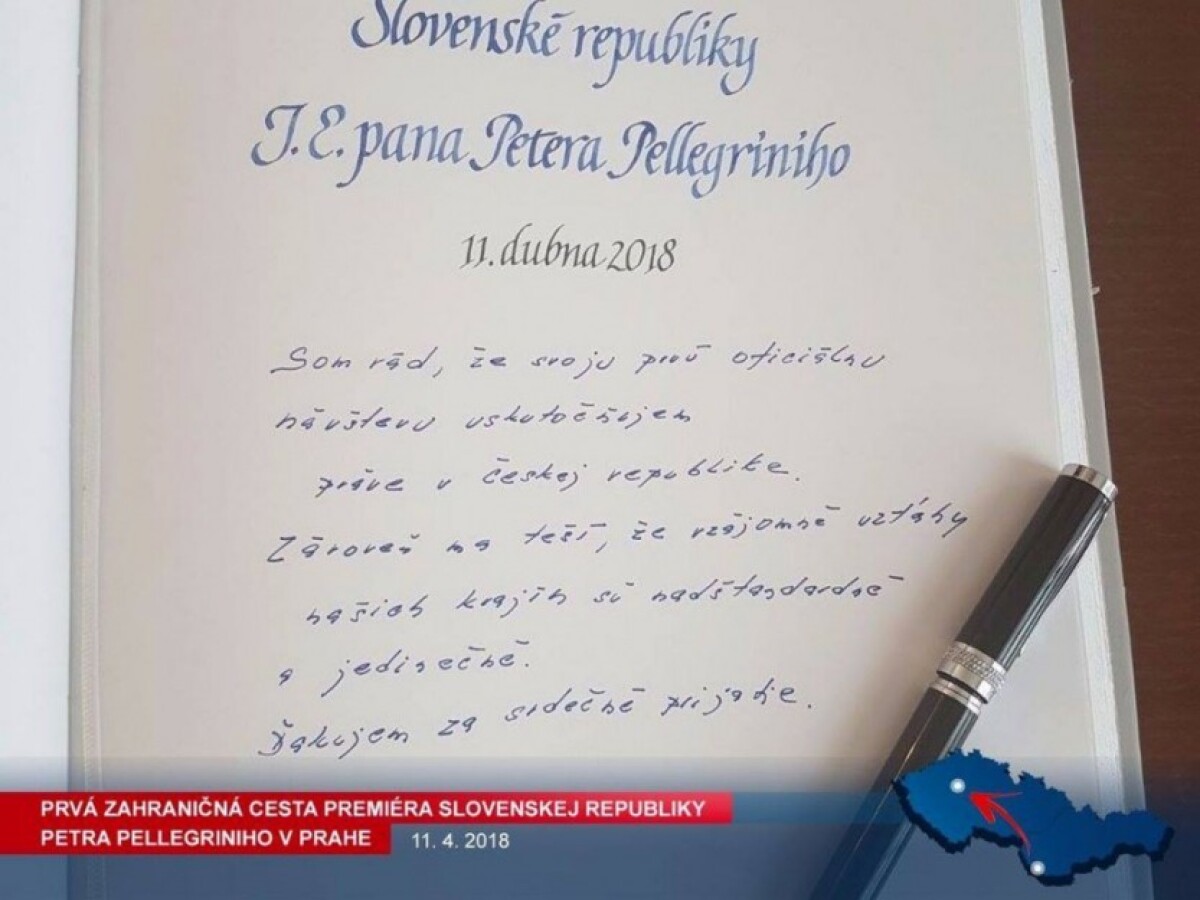 Slovenské republiky
J. E. pana Petera Pellegriniho
11. dubna 2018
Som rád, že svoju prvú oficiálnu
návštevu uskutočňujem
práve v českej republike.
Zároveň ma teší, že vzájomné vzťahy
našich krajín sú nadštandardné
a jedinečné.
Ďakujem za srdečné prijatie.
PRVÁ ZAHRANIČNÁ CESTA PREMIÉRA SLOVENSKEJ REPUBLIKY
PETRA PELLEGRINIHO V PRAHE 11. 4. 2018